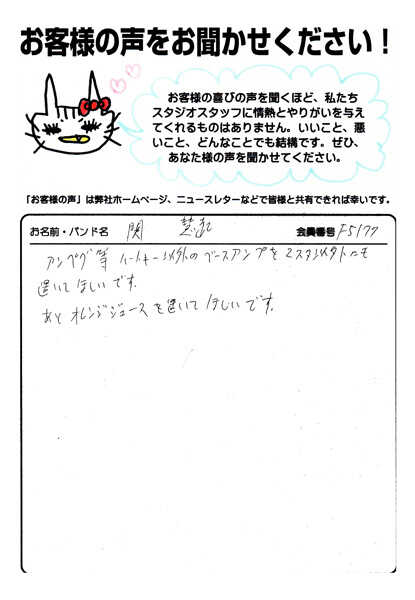 お客様の声をお聞かせください！
お客様の喜びの声を聞くほど、私たち
スタジオスタッフに情熱とやりがいを与え
てくれるものはありません。いいこと、悪
いこと、どんなことでも結構です。ぜひ、
あなた様の声を聞かせてください。
「お客様の声」は弊社ホームページ、ニュースレターなどで皆様と共有できれば幸いです。
お名前・バンド名 関 会員番号 F5177
アンペグ等 ハートキー以外のベースアンプを2スタ以外にも
置いてほしいです。
あと オレンジジュースを置いてほしいです。